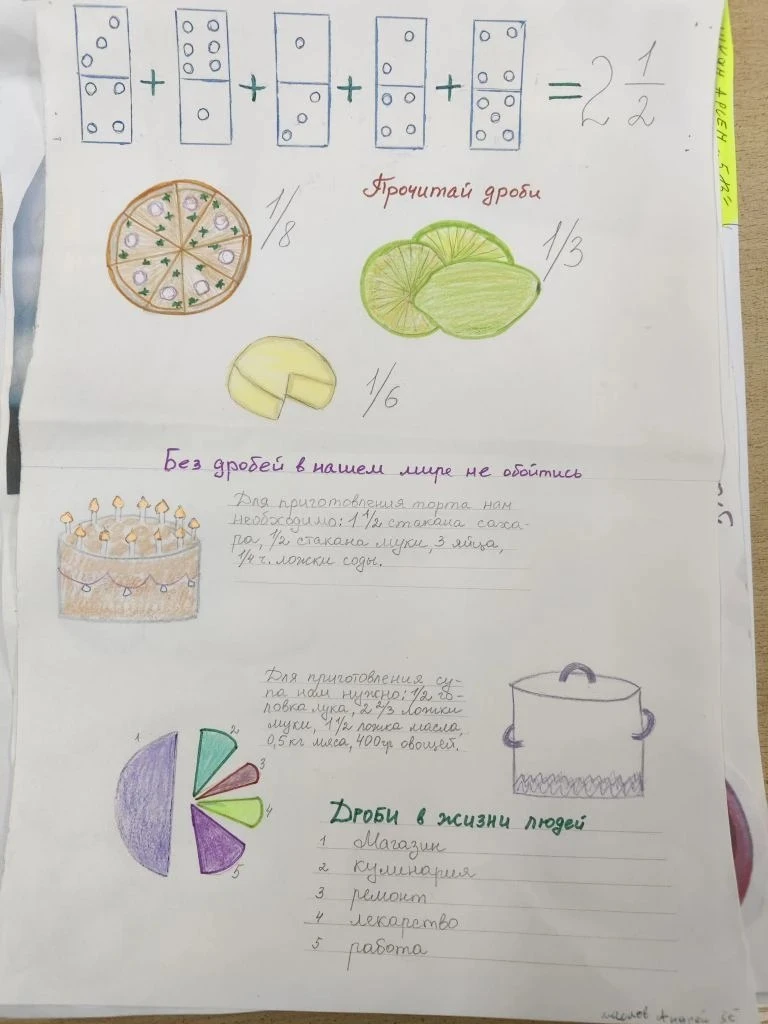 + + + + = 2 1/2
Прочитай дроби
1/8
1/3
1/6
Без дробей в нашем мире не обойтись
Для приготовления торта нам
необходимо: 1 1/2 стакана саха-
ра, 1/2 стакана муки, 3 яйца,
1/4 ч. ложки соды.
Для приготовления су-
па нам нужно: 1/2 го-
ловка лука, 2 2/3 ложки
муки, 1 1/2 ложка масла,
0,5 кг мяса, 400гр овощей.
1
2
3
4
5
Дроби в жизни людей
1 Магазин
2 кулинария
3 ремонт
4 лекарство
5 работа
Андрей 5